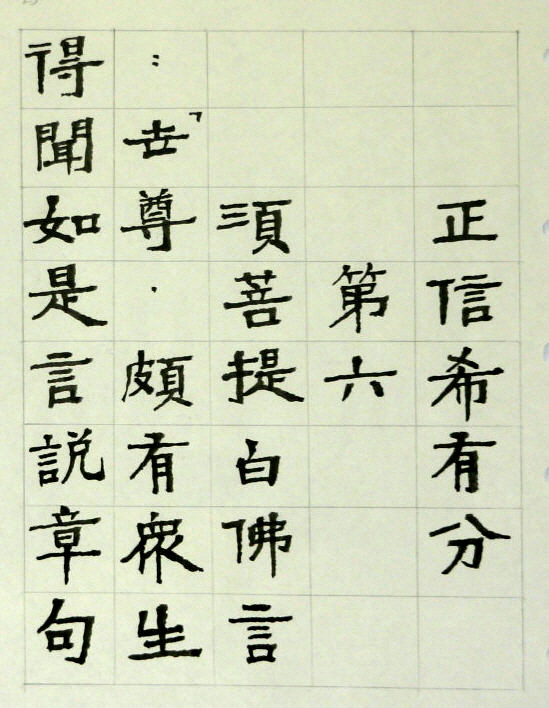 正信希有分
第六
須菩提白佛言
：「世尊．頗有衆生
得聞如是言説章句